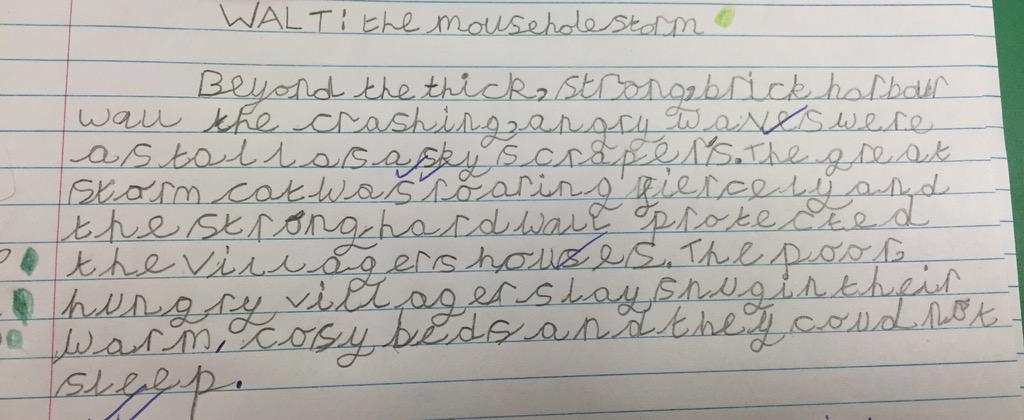 WALT: the mousehole storm
Beyond the thick, strong, brick harbour
wall the crashing, angry waves were
as tall as a sky scraper's. The great
storm cat was roaring fiercely and
the strong, hard wall protected
the villagers houses. The poor,
hungry villagers lay snug in their
warm, cosy beds and they coud not
sleep.